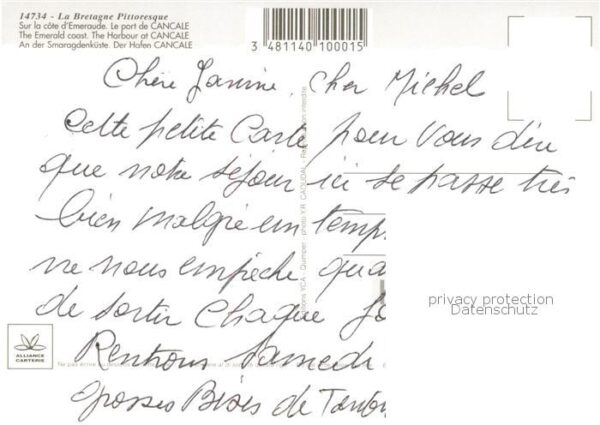 14734 - La Bretagne Pittoresque
Sur la côte d'Emeraude. Le port de CANCALE
The Emerald coast. The Harbour at CANCALE
An der Smaragdenküste. Der Hafen CANCALE
3 481140 100015
Chère Janine, Cher Michel
Cette petite Carte pour vous dire
que notre séjour ici se passe très
bien malgré un temps
ne nous empêche
de sortir Chaque
Rentrons Samedi
Grosses Bises de
Editions YCA - Quimper - photo Y.R. CAOUDAL - Reproduction interdite
ALLIANCE
CARTERIE
privacy protection
Datenschutz